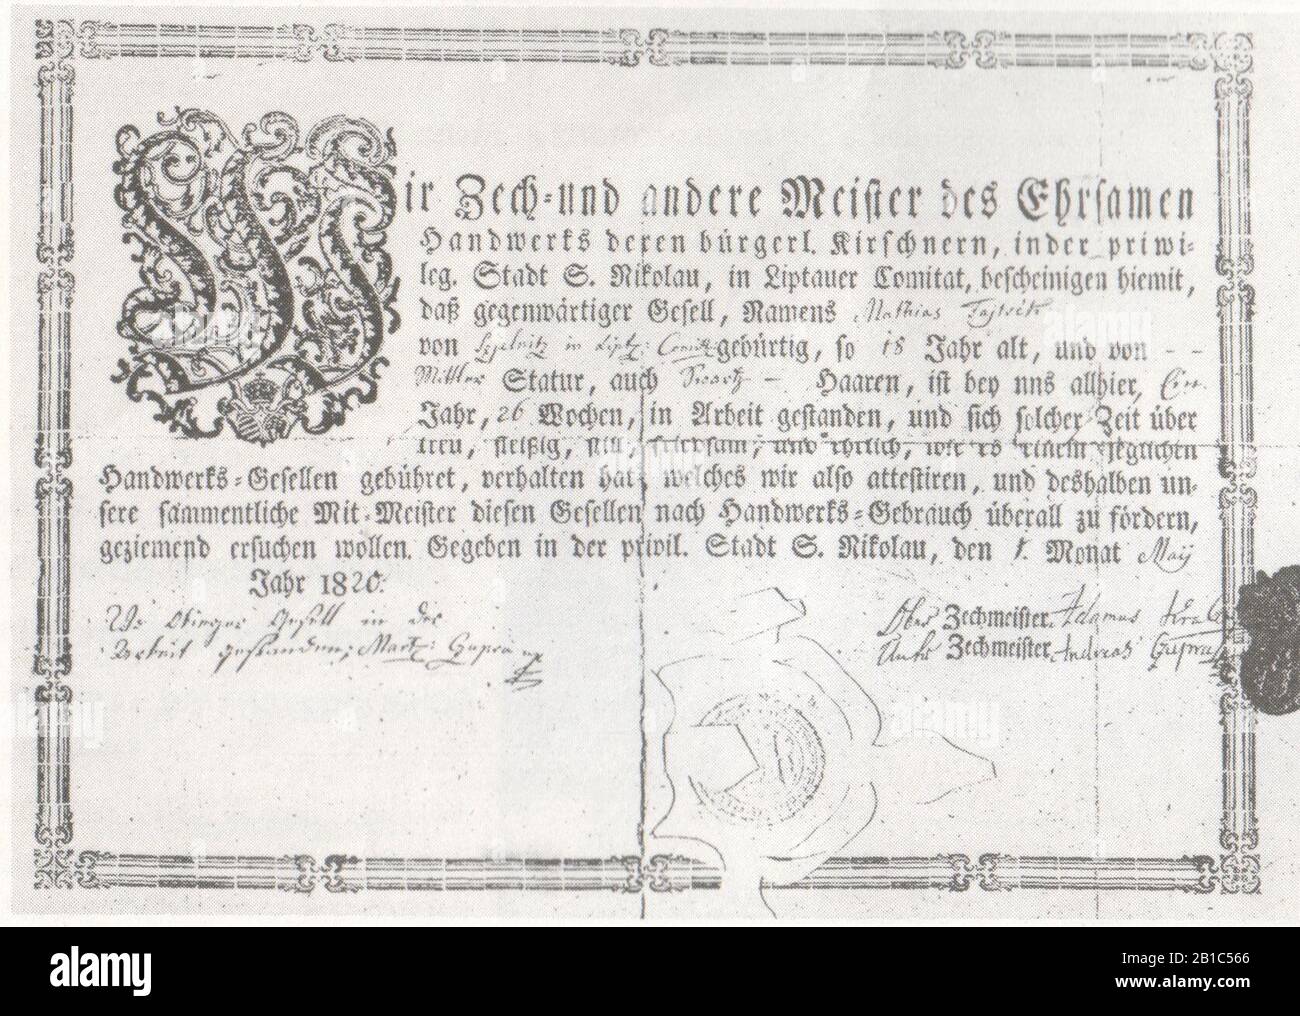 Wir Zech-und andere Meister des Ehrsamen
Handwerks deren bürgerl. Kirschnern, in der priwi-
leg. Stadt S. Nikolau, in Liptauer Comitat, bescheinigen hiemit,
daß gegenwärtiger Gesell, Namens Mathias
von in Lipt: gebürtig, so 18 Jahr alt, und von - -
Mittler Statur, auch Swartz - Haaren, ist bey uns allhier, Ein
Jahr, 26 Wochen, in Arbeit gestanden, und sich solcher Zeit über
treu, fleißig, still, friedsam, und ehrlich, wie es einem jeglichen
Handwerks-Gesellen gebühret, verhalten hat, welches wir also attestiren, und deshalben un-
sere sämmentliche Mit-Meister diesen Gesellen nach Handwerks-Gebrauch überall zu fördern,
geziemend ersuchen wollen. Gegeben in der privil. Stadt S. Nikolau, den 1. Monat Maij
Jahr 1820.
Wo Obiger Gesell in der
Arbeit gestanden,
Ober Zechmeister, Adamus
Unter Zechmeister, Andreas
alamy
Image ID: 2B1C566
www.alamy.com